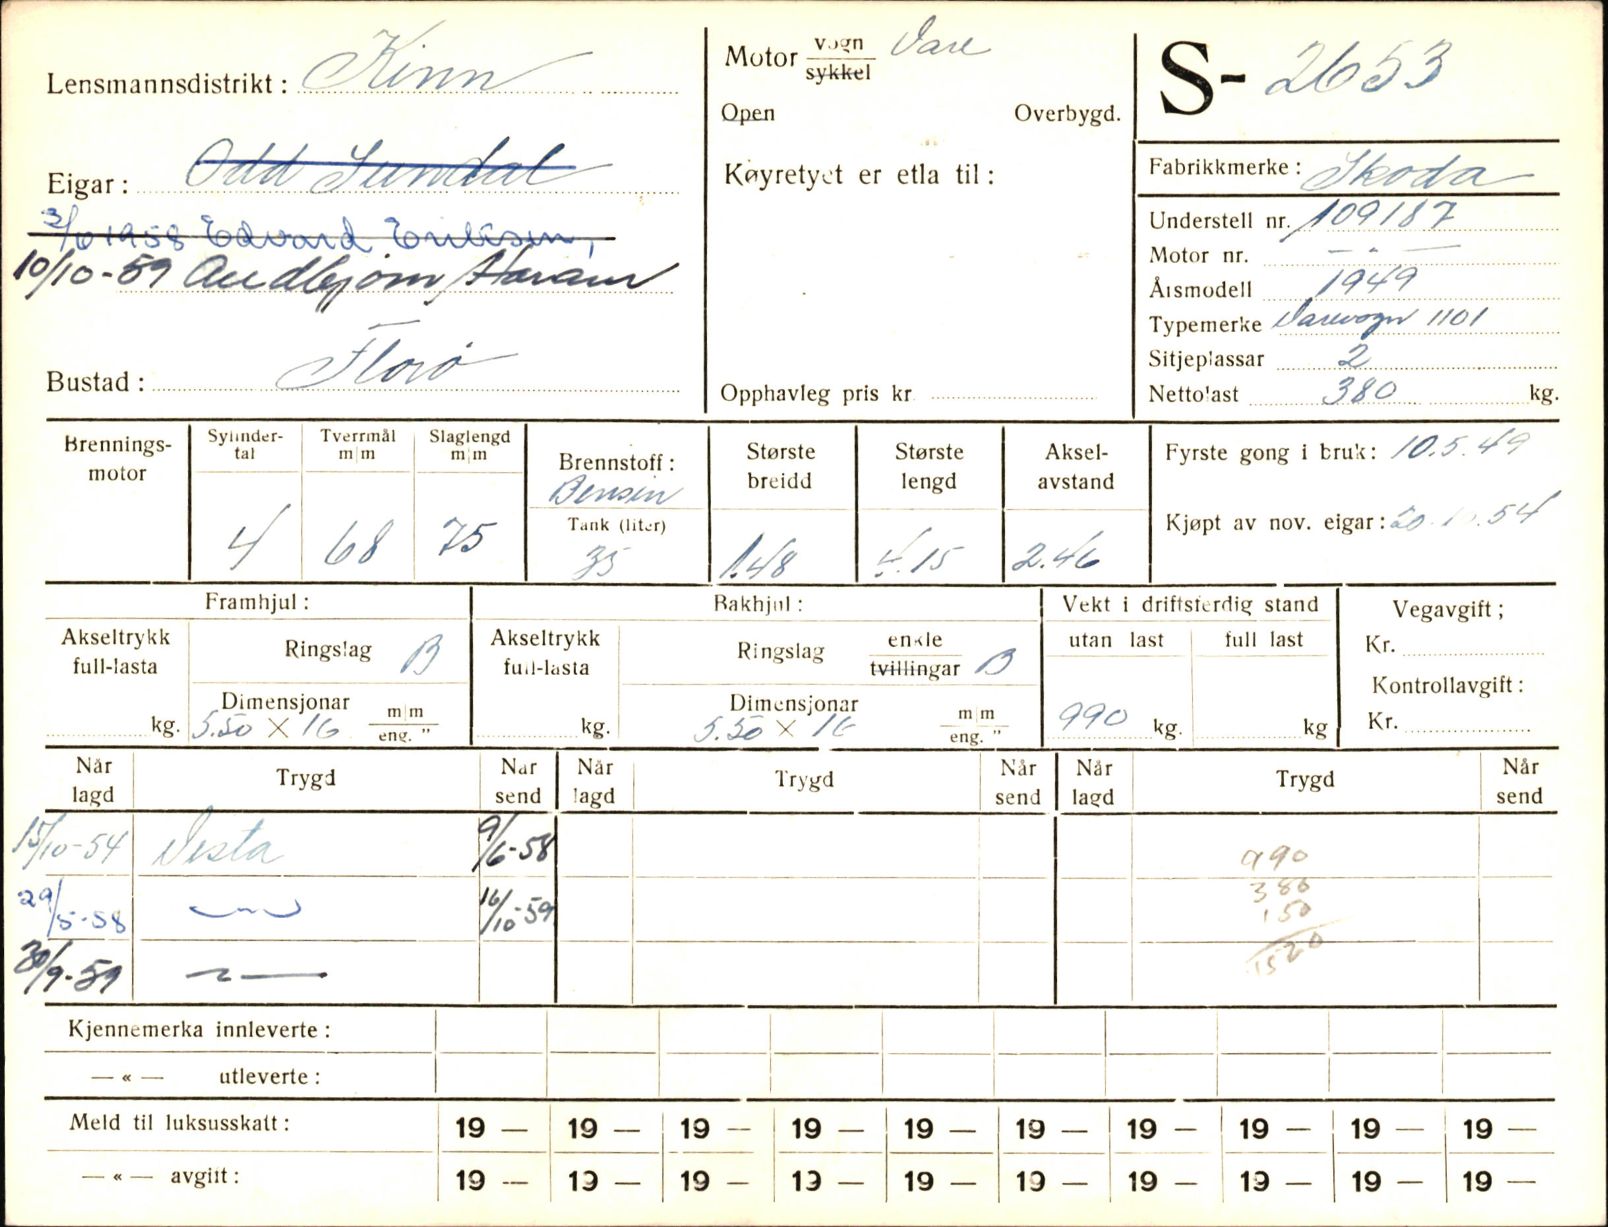 Lensmannsdistrikt: Kinn
Eigar: Odd Sundal
3/6 1958 Edvard Eriksen,
10/10-59 Audbjørn Haram
Bustad: Florø
Motor vogn Vare
sykkel
Open Overbygd.
Køyretyet er etla til:
Opphavleg pris kr
S- 2653
Fabrikkmerke: Skoda
Understell nr. 109187
Motor nr. — " —
Årsmodell 1949
Typemerke Varevogn 1101
Sitjeplassar 2
Nettolast 380 kg.
Brennings-motor
Sylinder-tal 4
Tverrmål m|m 68
Slaglengd m|m 75
Brennstoff: Bensin
Tank (liter) 35
Største breidd 1.48
Største lengd 4.15
Aksel-avstand 2.46
Fyrste gong i bruk: 10.5.49
Kjøpt av nov. eigar: 20.10.54
Framhjul:
Akseltrykk full-lasta kg.
Ringslag B
Dimensjonar 5.50 × 16 m|m eng. "
Bakhjul:
Akseltrykk full-lasta kg.
Ringslag enkle tvillingar B
Dimensjonar 5.50 × 16 m|m eng. "
Vekt i driftsferdig stand
utan last 990 kg.
full last kg
Vegavgift;
Kr.
Kontrollavgift:
Kr.
Når lagd Trygd Når send Når lagd Trygd Når send Når lagd Trygd Når send
15/10-54 Vesta 9/6-58
29/5-58 —"— 16/10-59
30/9-59 —"—
990
380
150
1520
Kjennemerka innleverte:
— « — utleverte:
Meld til luksusskatt: 19 — 19 — 19 — 19 — 19 — 19 — 19 — 19 — 19 — 19 —
— « — avgift: 19 — 19 — 19 — 19 — 19 — 19 — 19 — 19 — 19 — 19 —